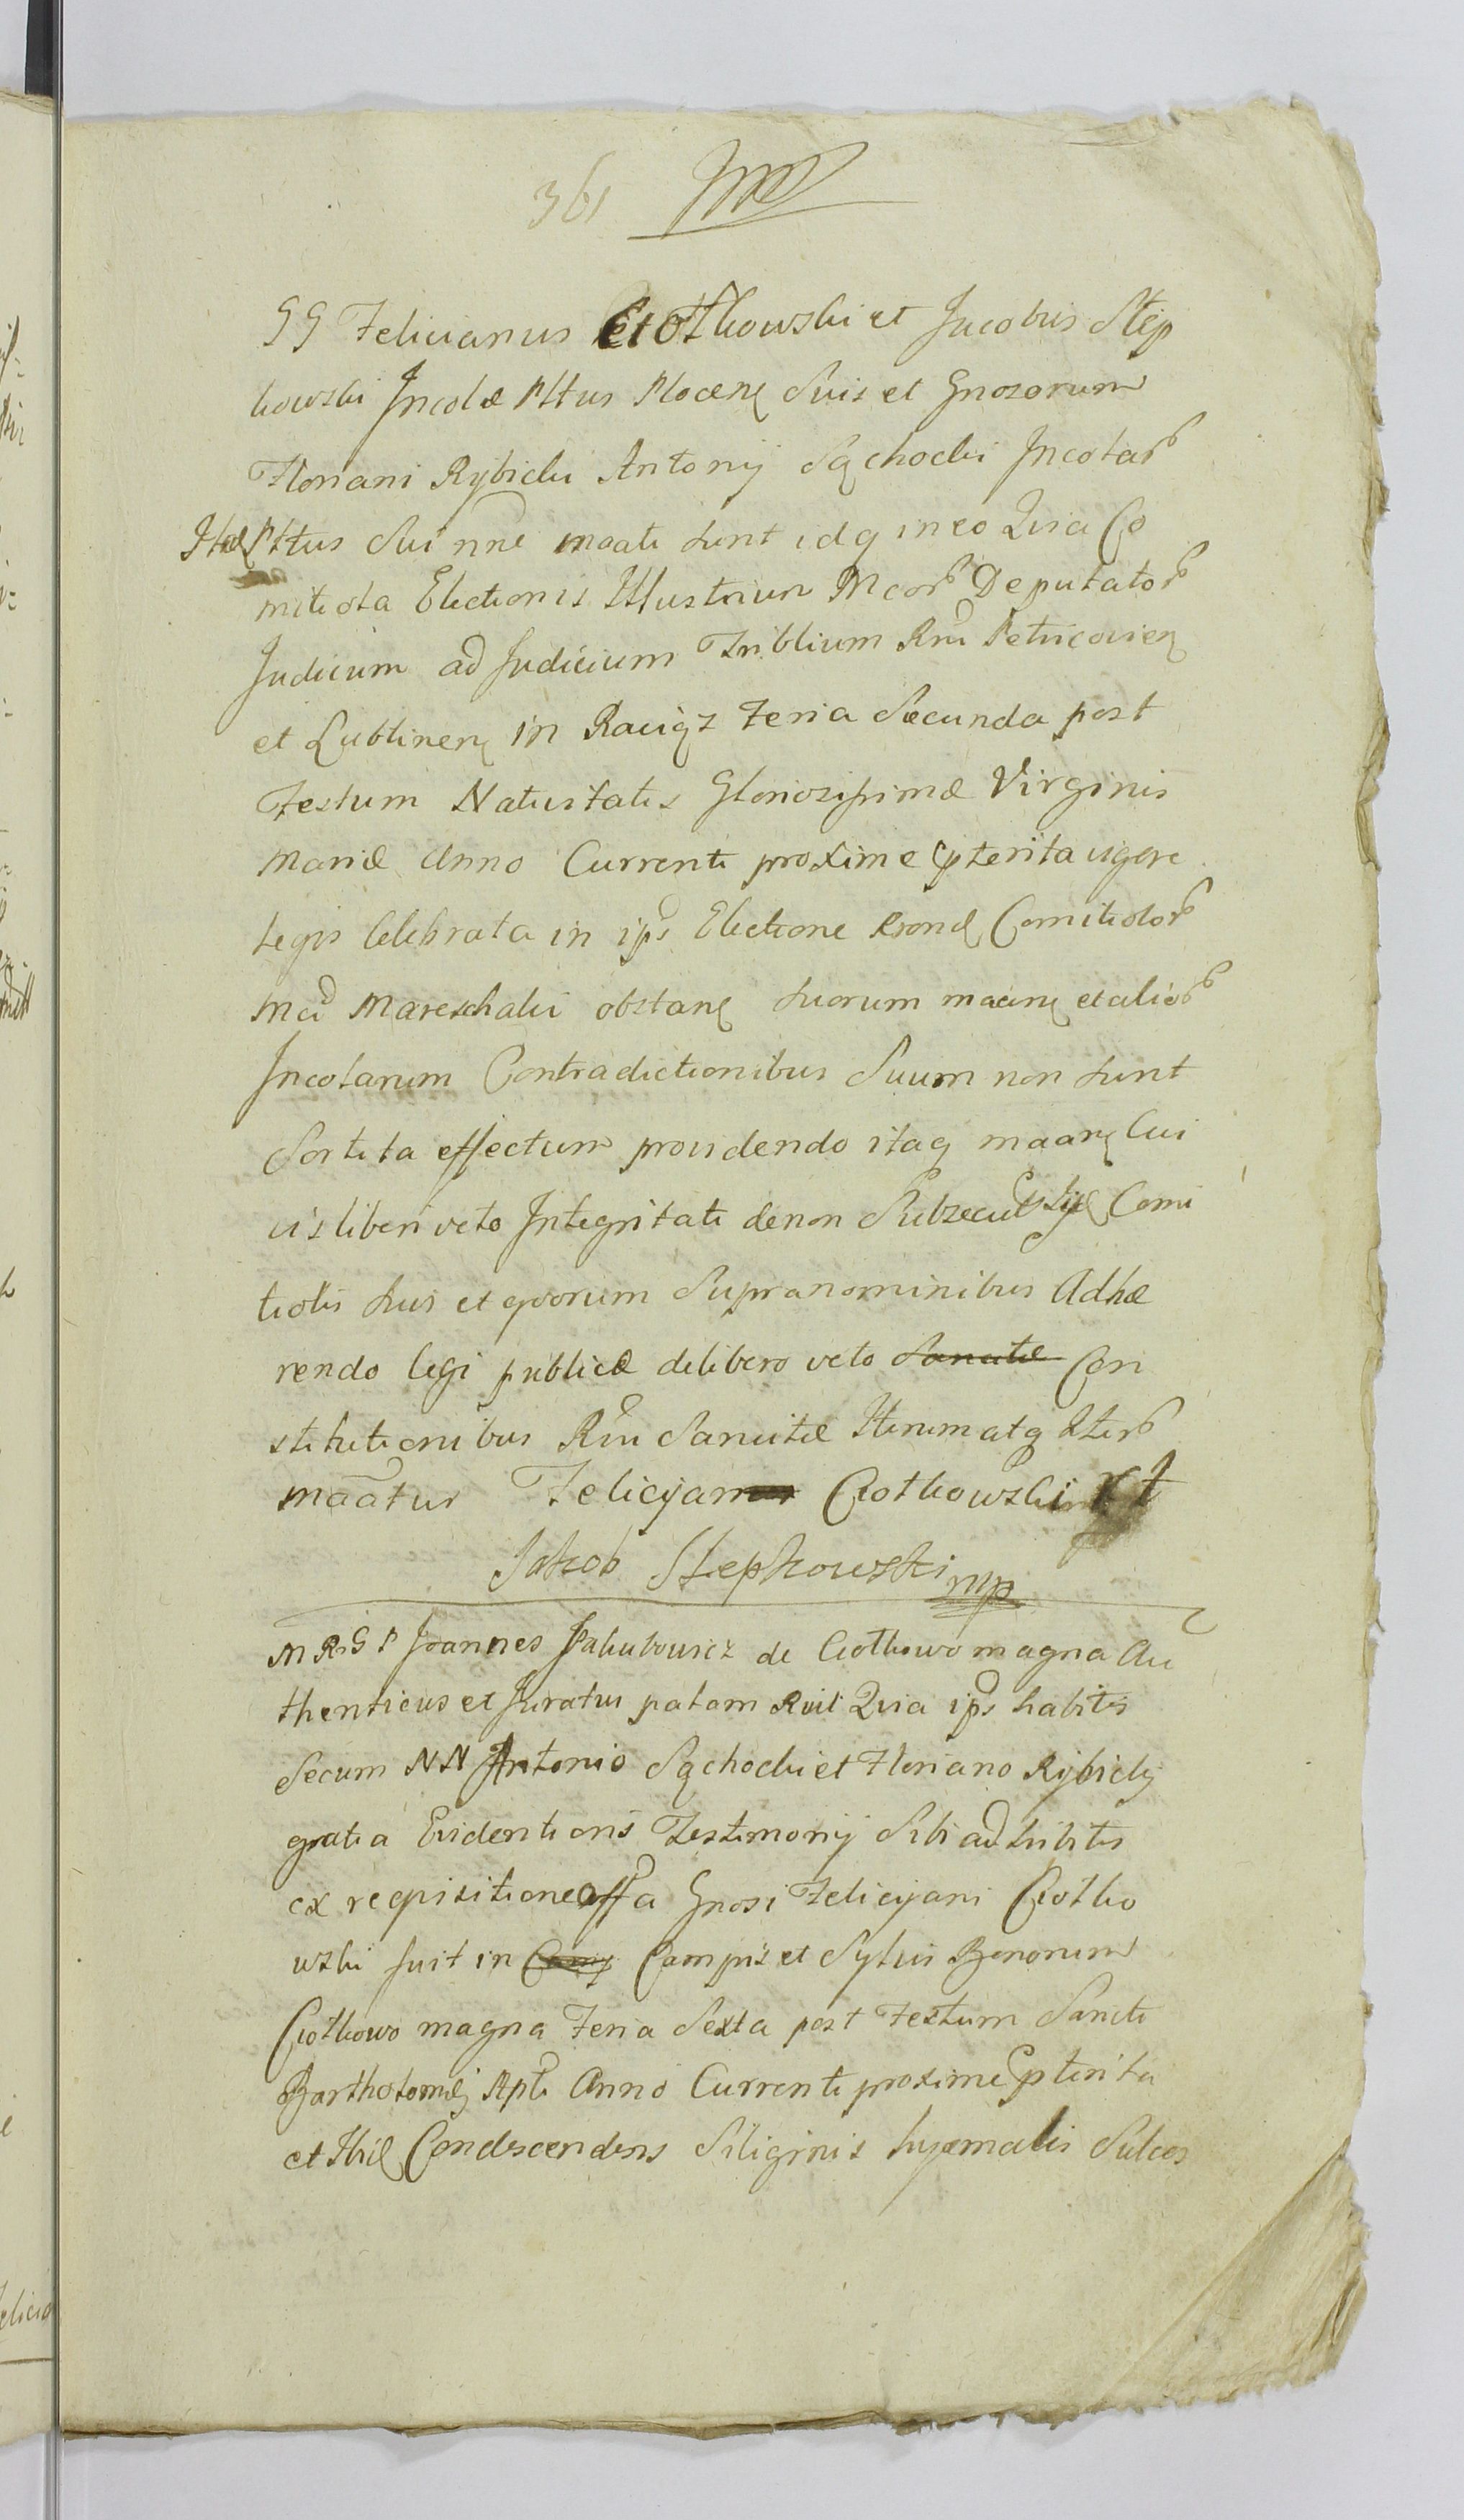 361
GG Felicianus Ciołkowski et Jacobus Stęp
kowski Incolæ Pttus Plocenʒ Suis et Gnosorum
Floriani Rybicki Antonij Sąchocki Incolarꝝ
Pttus Sui nne maati sunt idq in eo Quia Co
mitiola Electionis Illustrium Mcorꝝ Deputatorꝝ
Judicum ad Judicium Triblium Rni Petricovienʒ
et Lublinenʒ in Raciąż Feria Secunda post
Festum Nativitatis Gloriosissimæ Virginis
Mariæ Anno Currenti proxime pterita vigore
Legis Celebrata in ips Electione Comitiolorꝝ
Mci Mareschalci obstanʒ suorum maanʒ et aliorꝝ
Incolarum Contradictionibus Suum non sunt
Sortita effectum providendo itaq maanʒ Cui
vis liberi veto Integritati de non Subsecutis Comi
tiolis suis et quorum Supra nominibus Adhæ
rendo legi publicæ de libero veto Sancitæ Con
stitutionibus Rni Sancitæ Iterum atq Iterꝝ
maatur Felicyan Ciołkowski
Jakob Stępkowski mp
M R G P Joannes Jakubowicz de Ciołkowo magna Au
thenticus et Juratus palam Rvit Quia ips habitis
Secum NN Antonio Sąchocki et Floriano Rybicky
gratia Evidentioris Testimonij Sibi adhibitis
ex requisitione offa Gnosi Felicyani Ciołko
wski fuit in Camp Campis et Sylvis Bonorum
Ciołkowo magna Feria Sexta post Festum Sancti
Bartholomæj Apli Anno Currenti proxime pterita
et Ibid Condescendens Siliginis hyemalis Sulcos